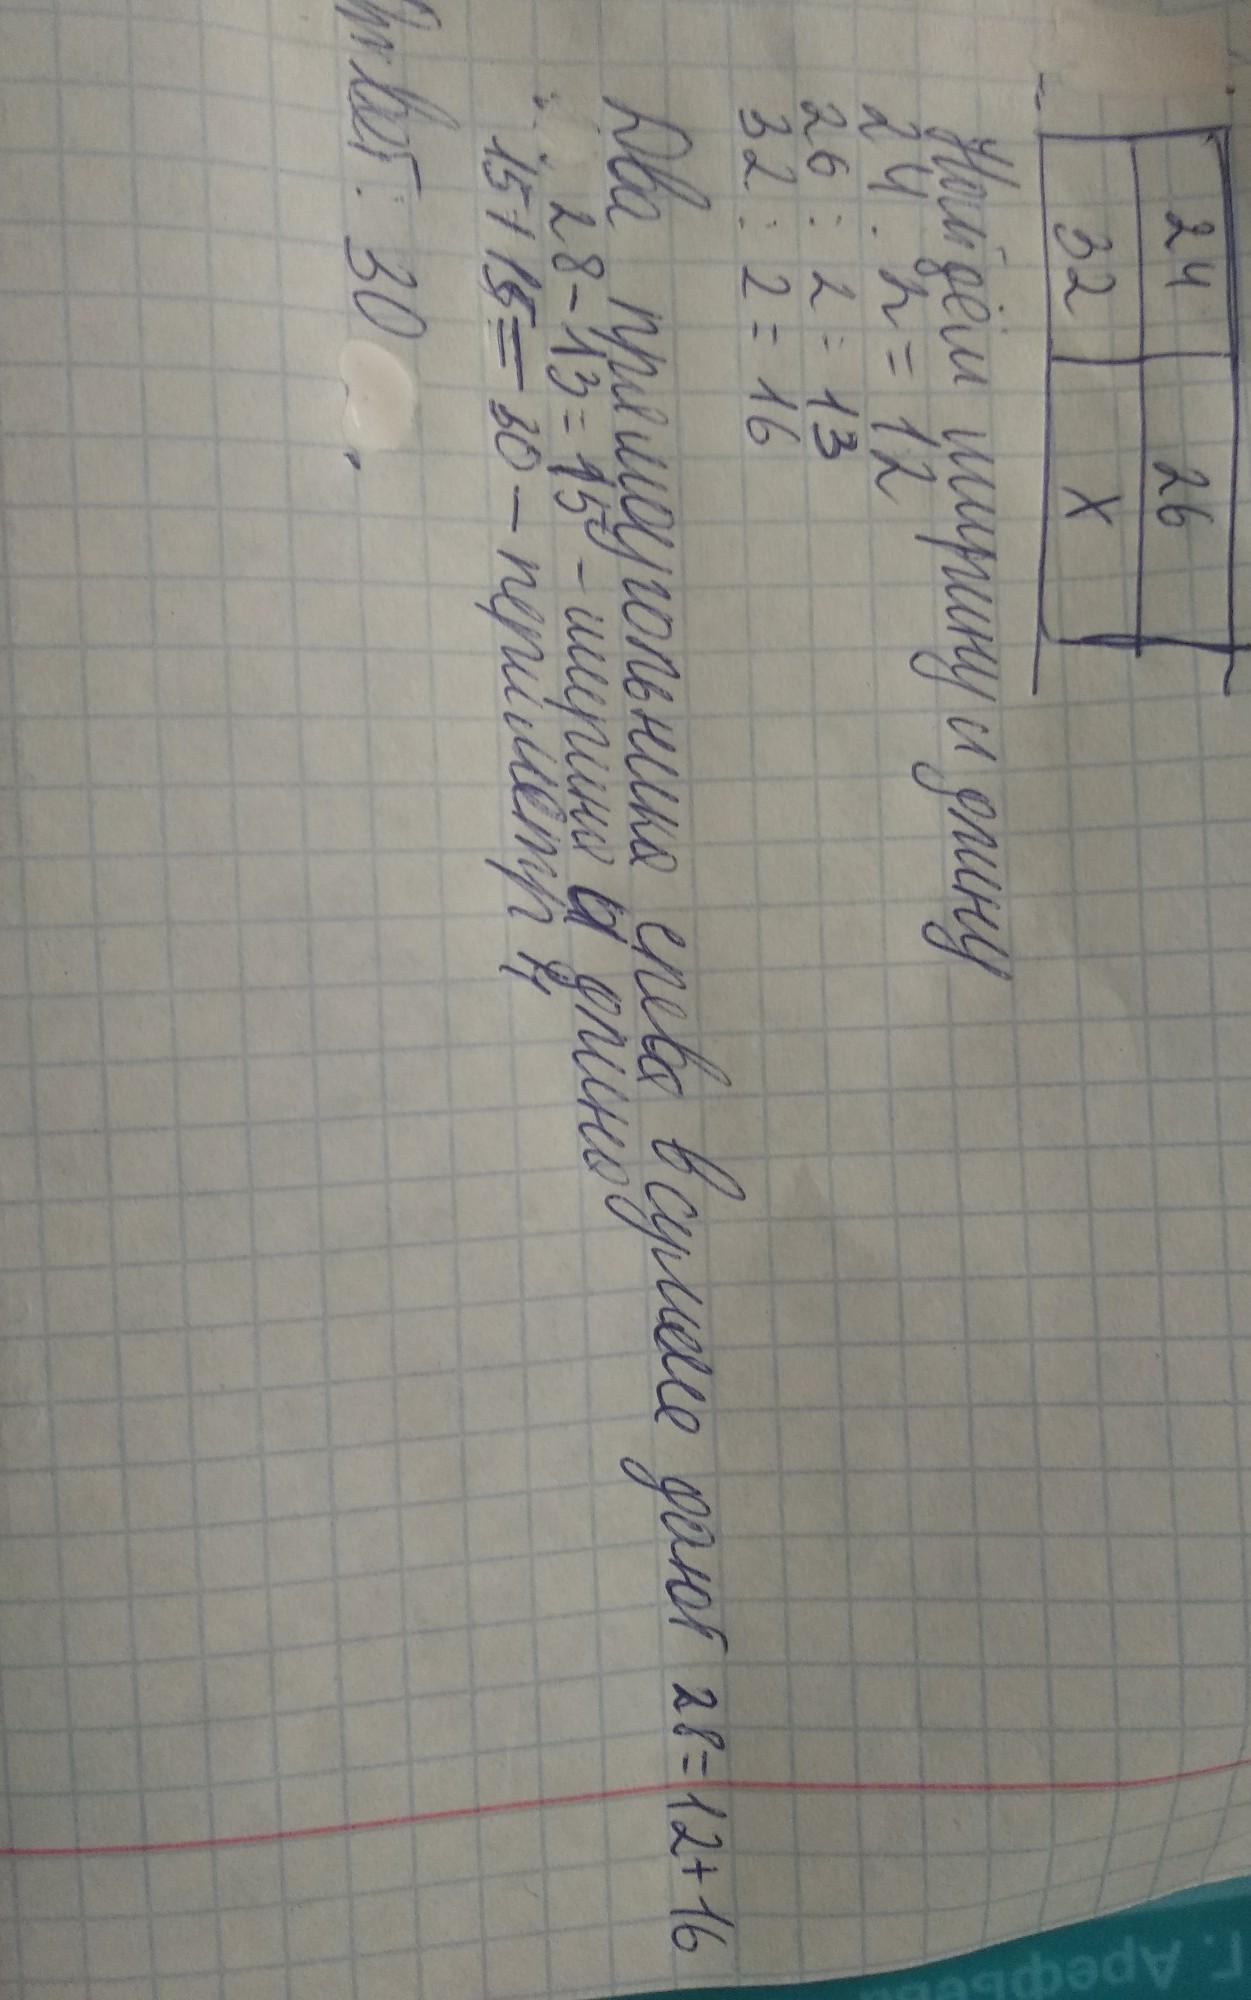 24 26
32 X
Найдём ширину и длину
24 : 2 = 12
26 : 2 = 13
32 : 2 = 16
Два прямоугольника слева в сумме дают 28=12+16
28-13=15 - ширина и длина
15+15=30 - периметр 4
Ответ: 30
Г. Арефьева